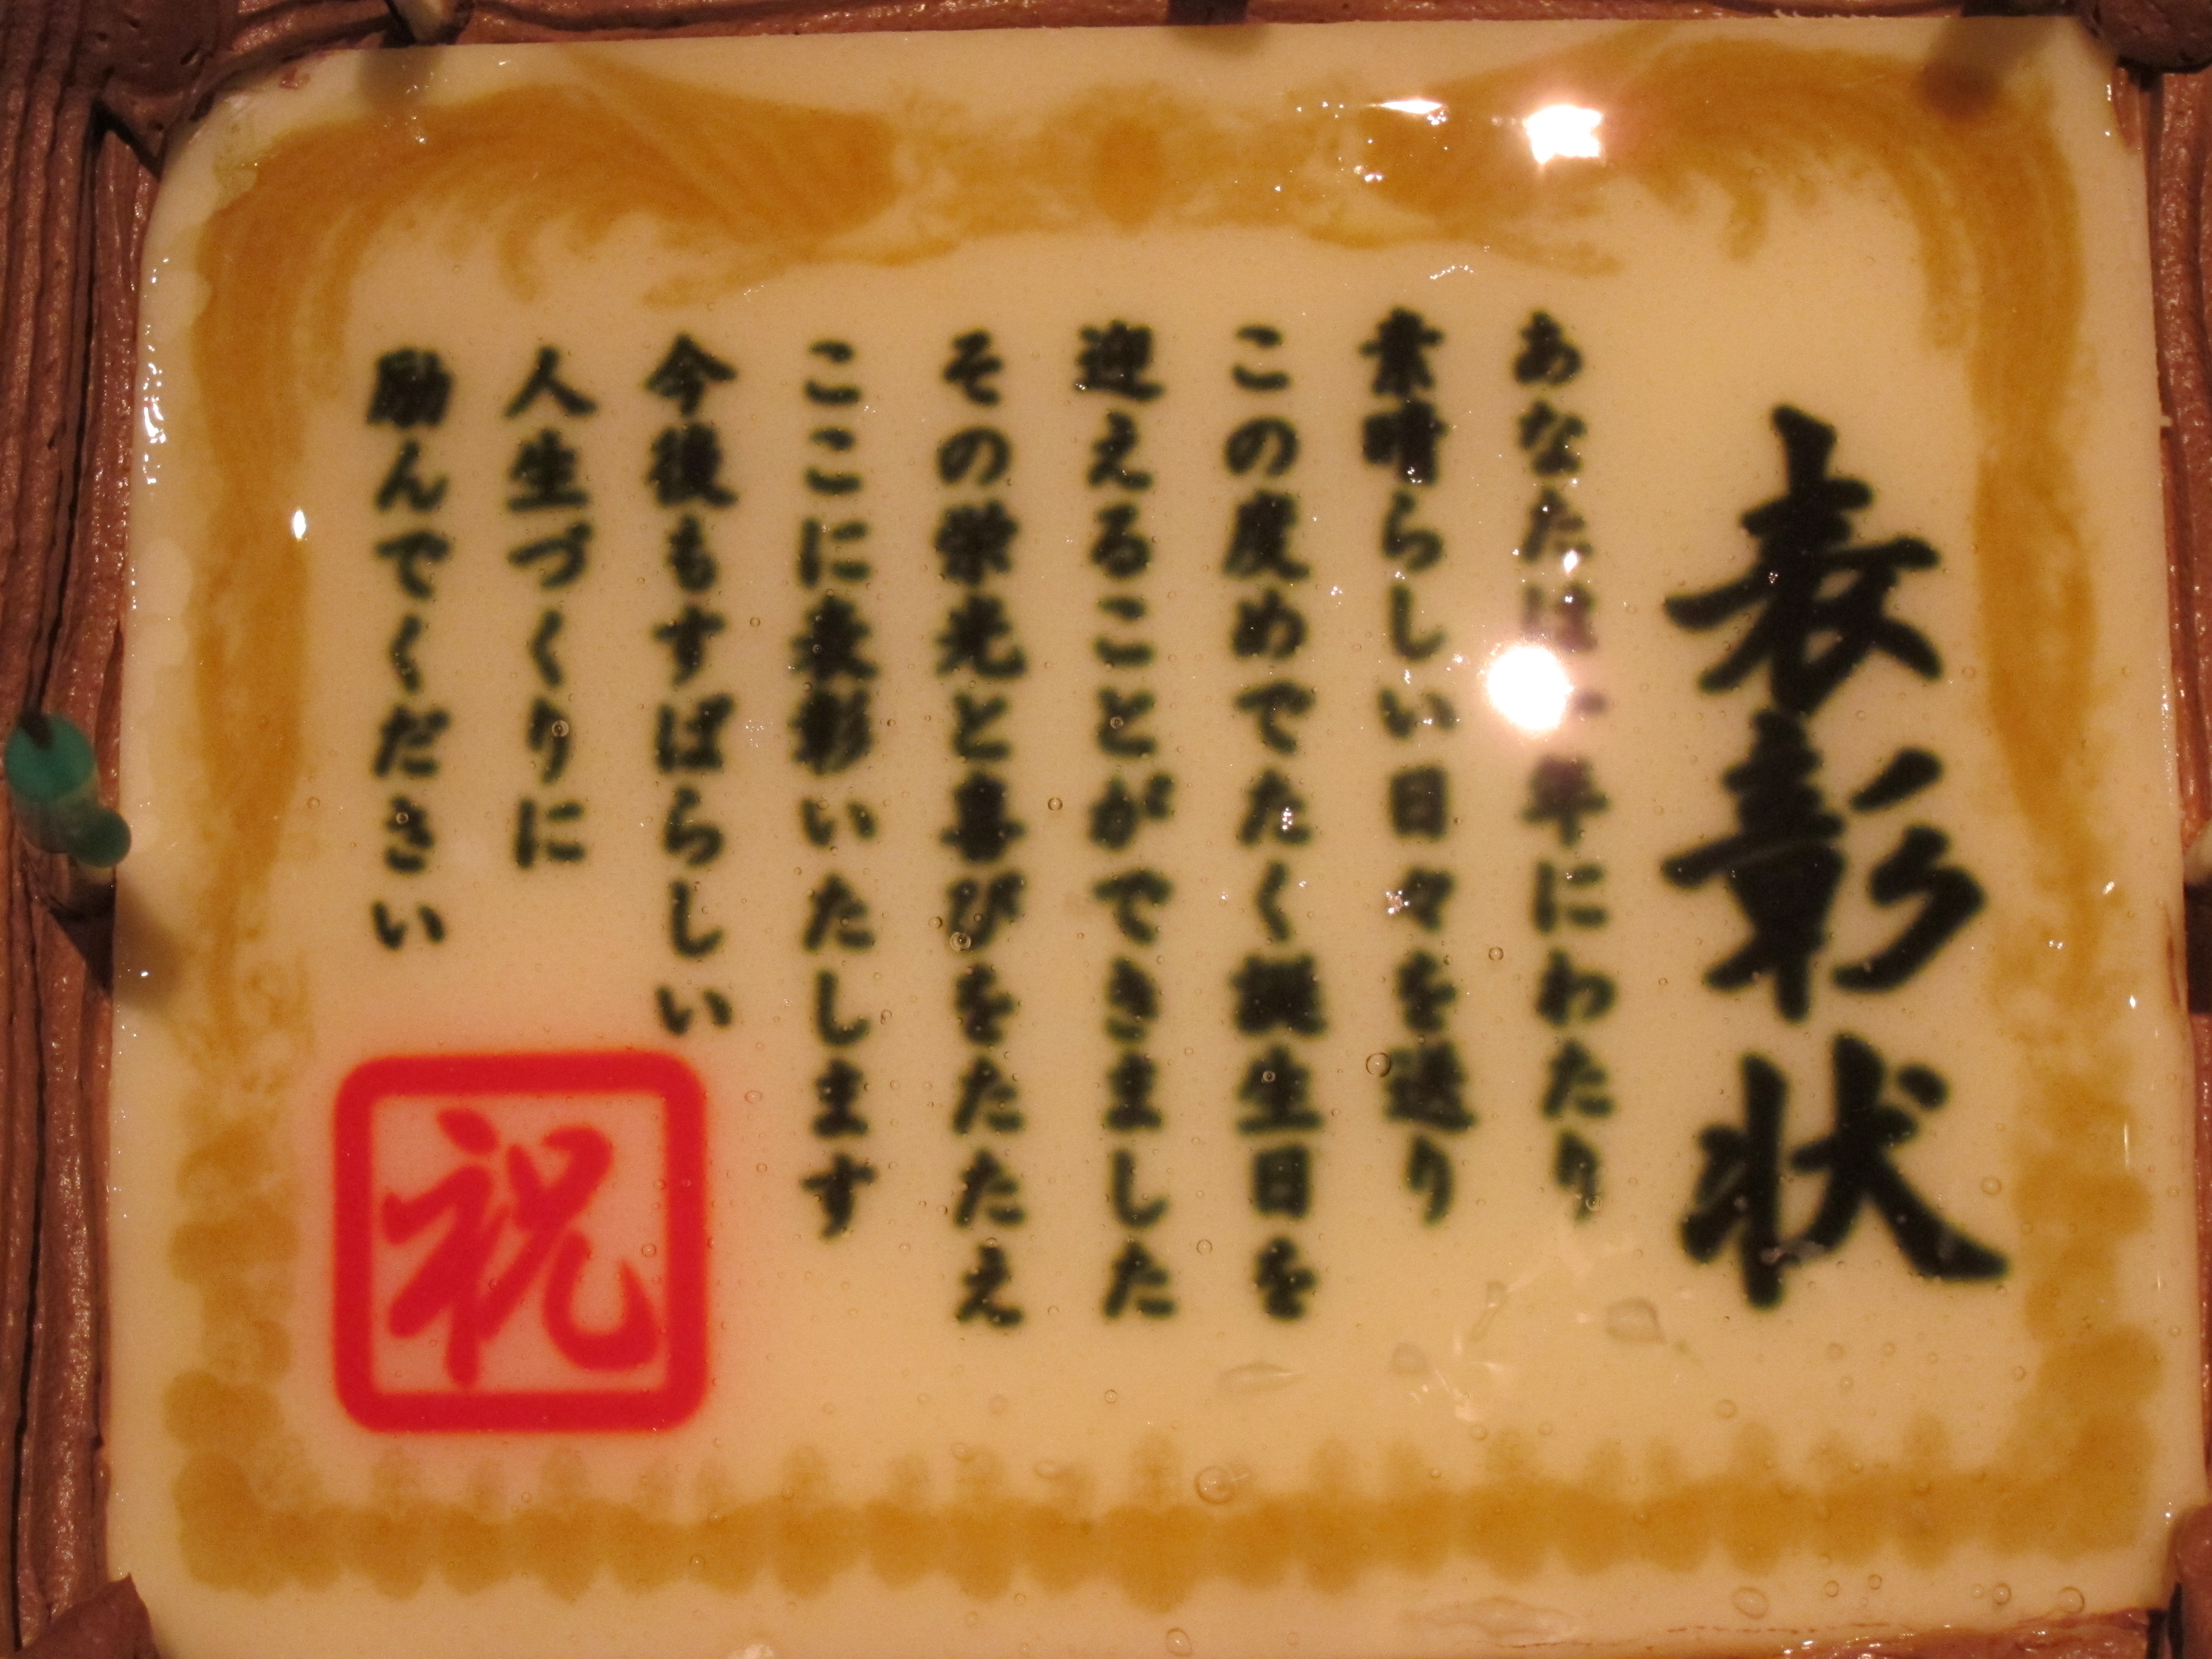 表彰状
あなたは一年にわたり
素晴らしい日々を送り
この度めでたく誕生日を
迎えることができました
その栄光と喜びをたたえ
ここに表彰いたします
今後もすばらしい
人生づくりに
励んでください
祝